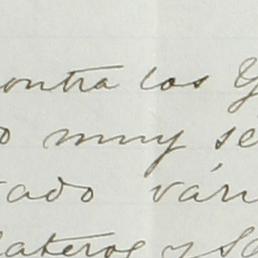 contra los
o muy se
tado vári
lateros y Sa